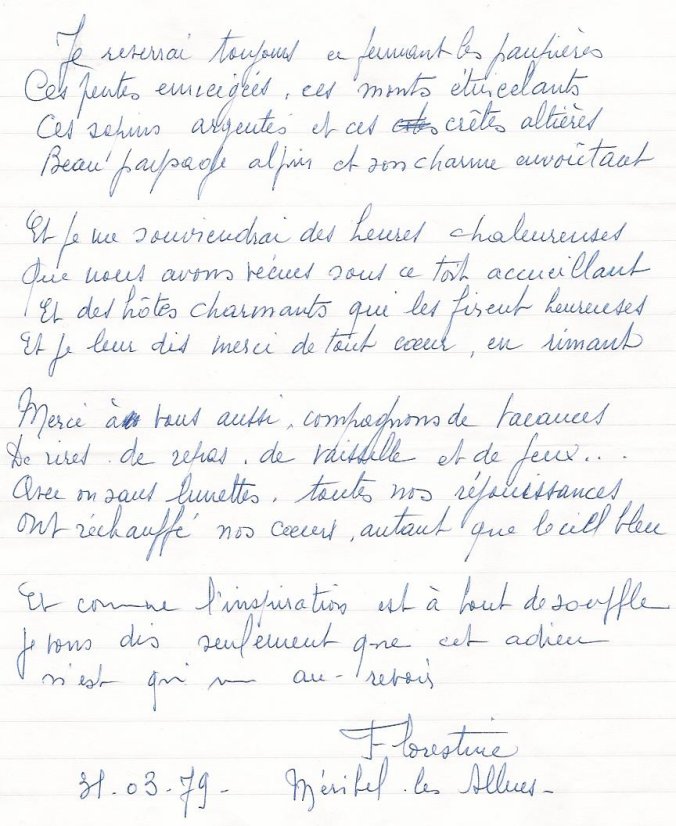 Je reverrai toujours en fermant les paupières
Ces pentes enneigées, ces monts étincelants
Ces sapins argentés et ces crêtes altières
Beau paysage alpin et son charme envoûtant
Et je me souviendrai des heures chaleureuses
Que nous avons vécues sous ce toit accueillant
Et des hôtes charmants qui les firent heureuses
Et je leur dis merci de tout cœur, en rimant
Merci à vous aussi, compagnons de vacances
De rires, de repas, de vaisselle et de jeux...
Avec ou sans lunettes, toutes nos réjouissances
Ont réchauffé nos cœurs, autant que le ciel bleu
Et comme l'inspiration est à bout de souffle
Je vous dis seulement que cet adieu
n'est qu'un au-revoir
Florestine
31-03-79- Méribel-les Allues-